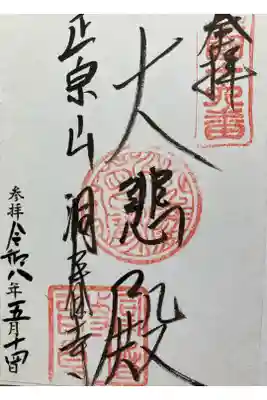 奉拝
大悲殿
正宗山 洞春寺
参拝 令和八年五月十四日